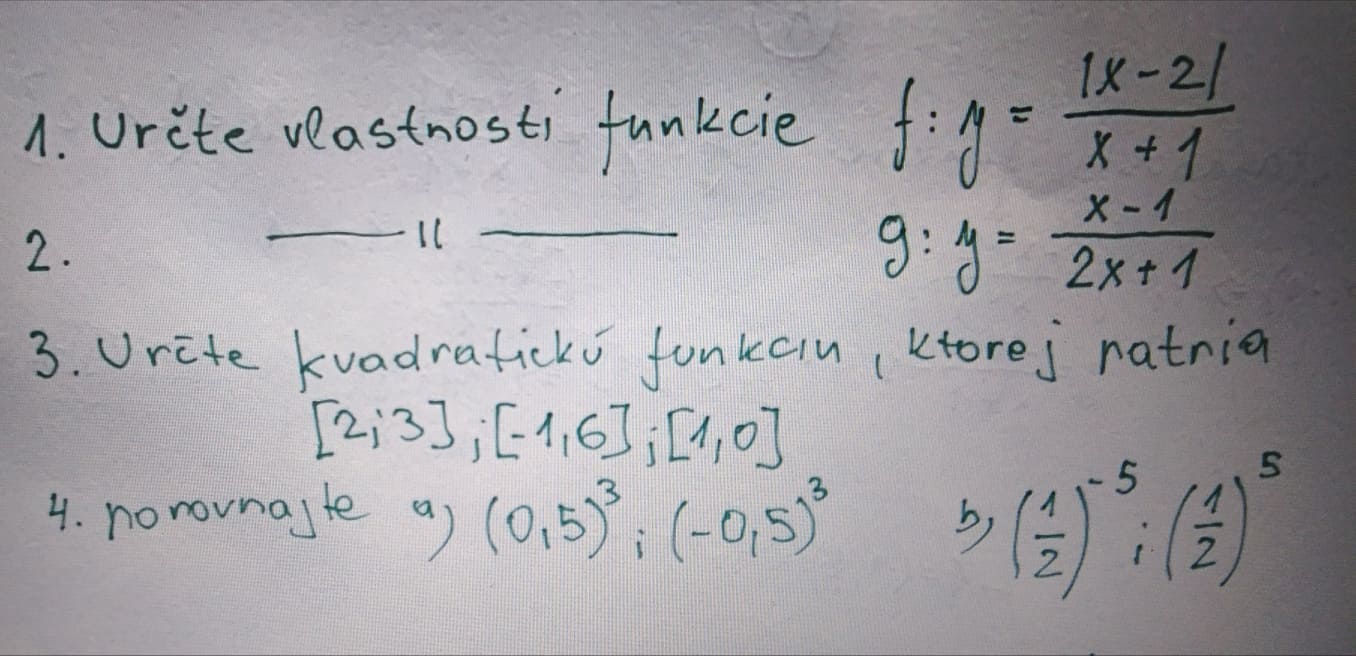 1. Určte vlastnosti funkcie f: y = |x-2| / x+1
2. —— 〃 —— g: y = x-1 / 2x+1
3. Určte kvadratickú funkciu, ktorej patria
[2;3]; [-1,6]; [1,0]
4. porovnajte a) (0,5)³ ; (-0,5)³ b) (1/2)⁻⁵ ; (1/2)⁵